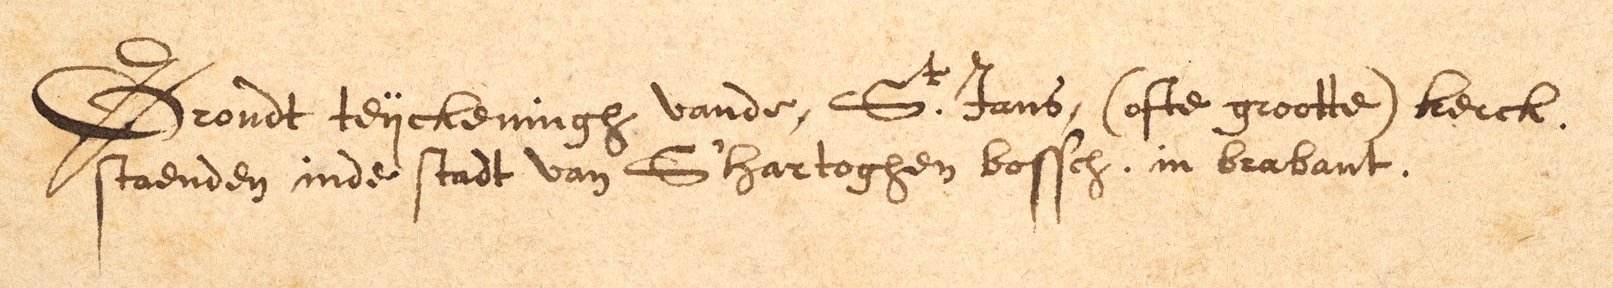 Grondt teijckeningh vande, St. Jans, (ofte grootte) kerck.
staenden inde stadt van S'hartoghen bossch. in brabant.